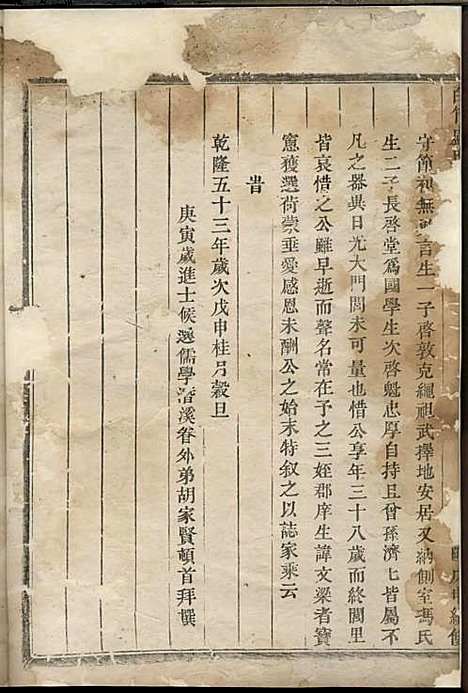 守節和無 言生一子啓敦克繩祖武擇地安居又納側室馮氏
生二子長啓堂爲國學生次啓魁忠厚自持且曾孫濟七皆屬不
凡之器異日光大門閭未可量也惜公享年三十八歲而終閭里
皆哀惜之公雖早逝而聲名常在予之三姪郡庠生諱文梁者寶
憲獲選荷蒙垂愛感恩未酬公之始末特叙之以誌家乘云
旹
乾隆五十三年歲次戊申桂月穀旦
庚寅歲進士候選儒學 溪眷外弟胡家賢頓首拜撰